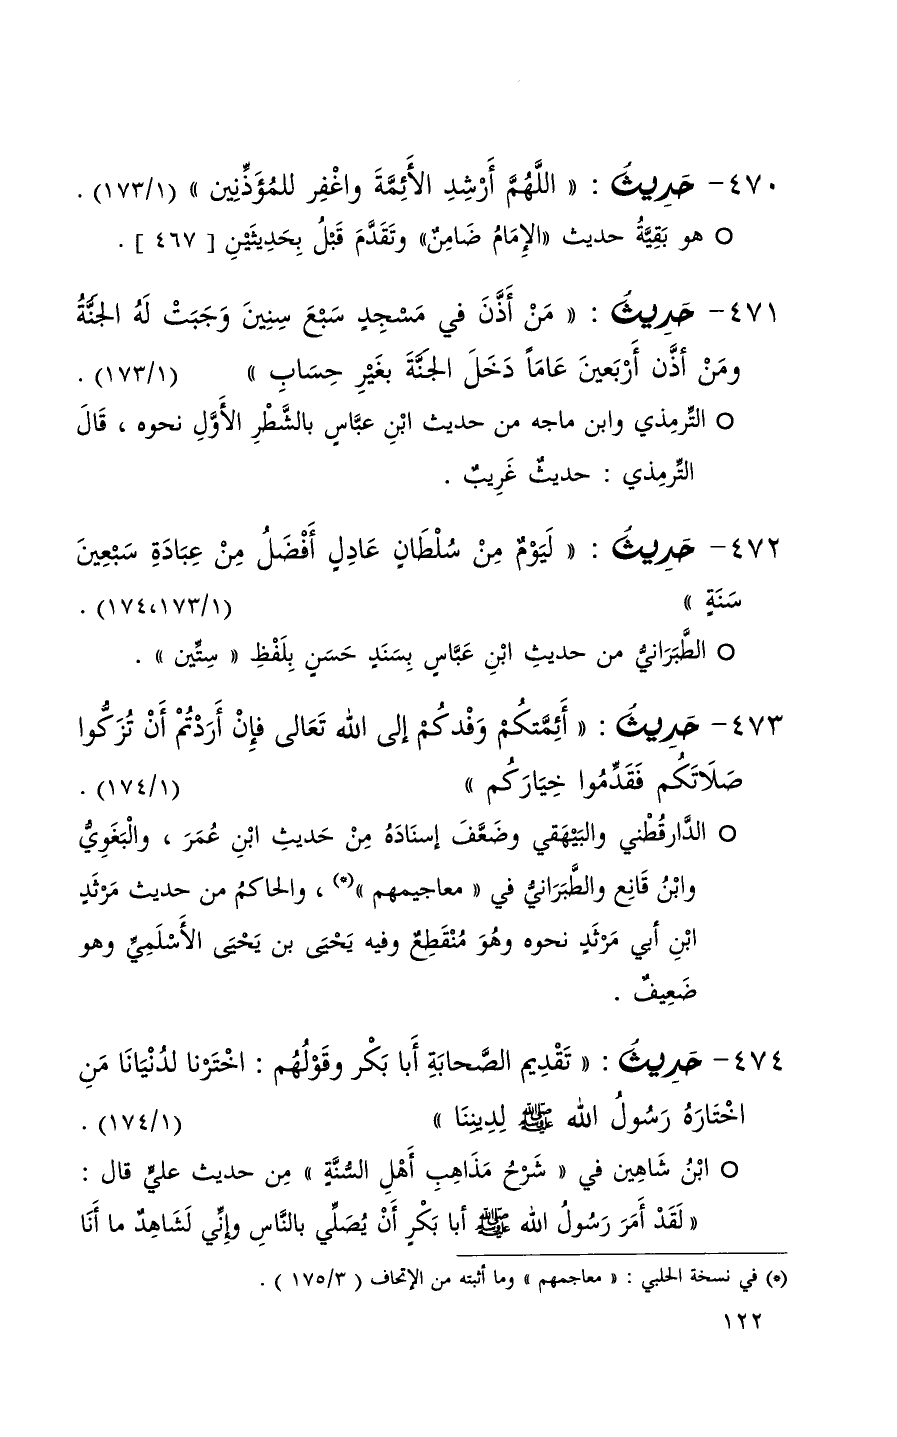 ٤٧٠- حَدِيثُ : « اللَّهُمَّ أَرْشِدِ الأَئِمَّةَ واغْفِر للمُؤَذِّنِين » (١٧٣/١) .
○ هو بَقِيَّةُ حديث «الإِمَامُ ضَامِنٌ» وتَقَدَّمَ قَبْلُ بِحَدِيثَيْنِ [ ٤٦٧ ] .
٤٧١- حَدِيثُ : « مَنْ أَذَّنَ في مَسْجِدٍ سَبْعَ سِنِينَ وَجَبَتْ لَهُ الجَنَّةُ
ومَنْ أذَّن أَرْبَعينَ عَامَاً دَخَلَ الجَنَّةَ بغَيْرِ حِسَابِ » (١٧٣/١) .
○ التِّرمِذي وابن ماجه من حديث ابْنِ عبَّاسٍ بالشَّطْرِ الأَوَّلِ نحوه ، قَالَ
التِّرمِذي : حديثٌ غَرِيبٌ .
٤٧٢- حَدِيثُ : « لَيَوْمٌ مِنْ سُلْطَانٍ عَادِلٍ أَفْضَلُ مِنْ عِبَادَةِ سَبْعِينَ
سَنَةٍ » (١٧٤،١٧٣/١) .
○ الطَّبَرَانيُّ من حديثِ ابْنِ عَبَّاسٍ بِسَنَدٍ حَسَنٍ بِلَفْظِ « سِتِّين » .
٤٧٣- حَدِيثُ : « أَئِمَّتكُمْ وَفْدكُمْ إلى الله تَعَالى فإِنْ أَرَدْتُمْ أَنْ تُزَكُّوا
صَلَاتَكُم فَقَدِّمُوا خِيَارَكُم » (١٧٤/١) .
○ الدَّارقُطْني والبَيْهَقي وضَعَّفَ إسنَادَهُ مِنْ حَديثِ ابْنِ عُمَرَ ، والْبَغَوِيُّ
وابْنُ قَانِع والطَّبَرَانيُّ في « معاجيمهم »(*) ، والحاكمُ من حديث مَرْثَدٍ
ابْنِ أبي مَرْثَدٍ نحوه وهُوَ مُنْقَطِعٌ وفيه يَحْيَى بن يَحْيَى الأَسْلَمِيِّ وهو
ضَعِيفٌ .
٤٧٤- حَدِيثُ : « تَقْدِيم الصَّحابَةِ أَبا بَكْر وقَوْلُهُم : اخْتَرْنا لدُنْيَانَا مَنِ
اخْتَارَهُ رَسُولُ الله ﷺ لِدِينِنَا » (١٧٤/١) .
○ ابْنُ شَاهِين في « شَرْحُ مَذَاهِبِ أَهْلِ السُّنَّةِ » مِن حديث عليٍّ قال :
« لَقَدْ أَمَرَ رَسُولُ الله ﷺ أبا بَكْرٍ أَنْ يُصَلِّي بالنَّاسِ وإِنِّي لَشَاهِدٌ ما أَنَا
(*) في نسخة الحلبي : « معاجمهم » وما أثبته من الإتحاف ( ١٧٥/٣ ) .
١٢٢